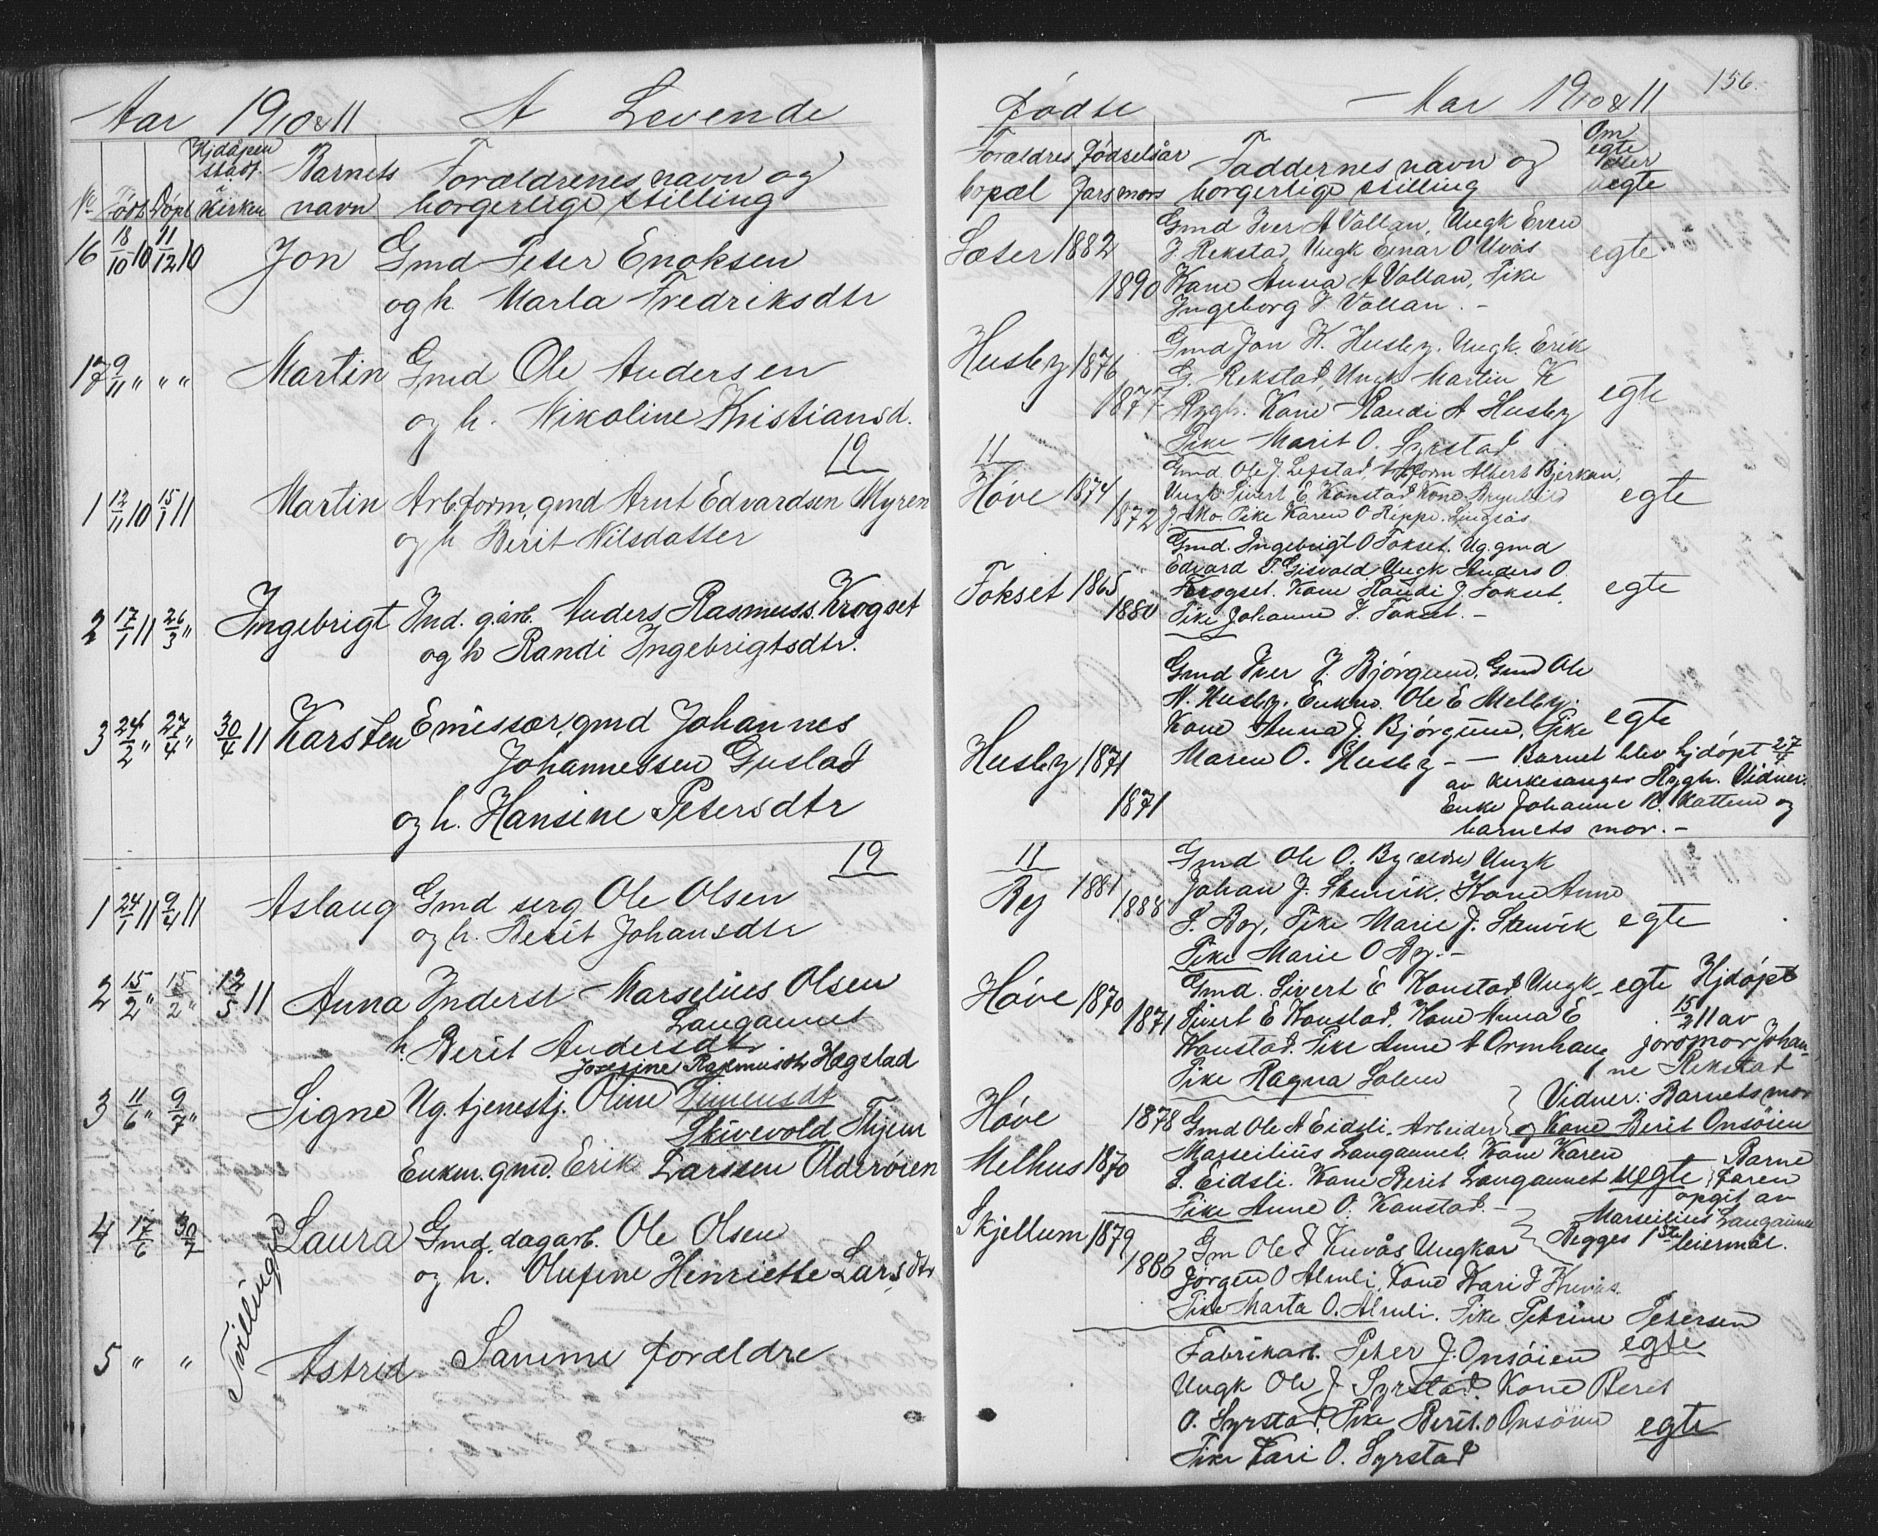 Aar 1910 & 11 A Levende
No Født Døpt Hjdåpen stadf. i kirken Barnets navn Forældrenes navn og borgerlige stilling
16 18/10 10 11/12 10 Jon Gmd Peter Enoksen
og h. Marta Fredriksdtr
17 9/11 " " " Martin Gmd Ole Andersen
og h. Nikoline Kristiansd.
19
1 12/11 10 15/1 11 Martin Arbform, gmd Arnt Edvardsen Myren
og h Berit Nilsdatter
2 17/1 11 26/3 " Ingebrigt Ind. g.arb. Anders Rasmuss. Krogset
og h Randi Ingebrigtsdtr.
3 24/2 " 27/4 " 30/4 11 Karsten Emissær, gmd Johannes
Johannessen Gustad
og h. Hansine Petersdtr
19
1 24/1 11 9/4 11 Aslaug Gmd serg Ole Olsen
og h. Berit Johansdtr
2 15/2 " 15/2 " 12/5 11 Anna Inderst Marselius Olsen
Langaunet
h. Berit Andersdtr.
Josefine Rasmusdtr Hegstad
3 11/6 " 9/7 " Signe Ug. tjenestj. Oline
Skivevold Thjem
Enkm. gmd. Erik Larssen Olderøien
4 17/6 30/7 Laura Gmd. dagarb. Ole Olsen
og h. Olufine Henriette Larsdtr
Tvillinger
5 " " Astrid Samme forældre
Fødte Aar 1910 & 11 156.
Forældres bopæl Fødselsår fars mors Faddernes navn og borgerlige stilling Om egte eller uegte
Gmd Iver A Vollan, Ungk Even
Sæter 1882 J. Rekstad, Ungk Einar O Uvås egte
1890 Kone Anna A Vollan, Pike
Ingeborg J Vollan. -
Gmd Jon K. Husby. Ungk. Erik
Husby 1876 G. Rekstad, Ungk Martin K
1877 Rygh. Kone Randi A Husby egte
Pike Marit O. Syrstad
11
Gmd Ole J. Lefstad, Arbform Albert Bjerkan,
Høve 1874 Ungk Sivert E. Konstad Kone Brynhild egte
1872 J. Mo. Pike Karen O Rippe.
Gmd. Ingebrigt O Fokset. Ug. gmd
Edvard P. Gisvold, Ungk Anders O
Fokset 1865 Krogset. Kone Randi J. Fokset. egte
1880 Pike Johanne J. Fokset. -
Gmd Iver J. Bjørgum, Gmd Ole
N. Husby. Enkm. Ole E Melby.
Kone Anna J. Bjørgum, Pike egte
Husby 1871 Maren O. Husby - - Barnet blev hjdøpt 27/4
av kirkesanger Rygh. Vidner:
1871 Enke Johanne K. Kattem og
barnets mor. -
11 Gmd Ole O. By ældre Ungk
By 1881 Johan J. Stenvik. Kone Anne
1888 S. By, Pike Marie J. Stenvik egte
Pike Marie O By. -
Gmd. Sivert E Konstad Ungk egte Hjdøpt
Høve 1870 1871 Sivert E Konstad. Kone Anna E 15/2 11 av
Konstad. Pike Anne A Ormhaug jormor Johan-
Pike Ragna Solem ne Rekstad
Vidner: Barnets mor
Høve 1878 Gmd Ole A Eidsli. Arbeider og Kone Berit Onsøien
Marselius Langaunet. Kone Karen
Melhus 1870 S. Eidsli. Kone Berit Langaunet uegte Barne
faren
Pike Anne O. Konstad. - opgit av
Marselius Langaunet
Skjellum 1879 Gm Ole J Kuvås Ungkar Begges 1ste leiermål.
1886 Jørgen O Almli, Kone Kari J Kuvås.
Pike Marta O. Almli. Pike Petrine Petersen
Fabrikarb. Peter J. Onsøien egte
Ungk Ole J Syrstad. Kone Berit
O. Syrstad. Pike Berit O Onsøien egte
Pike Kari O. Syrstad